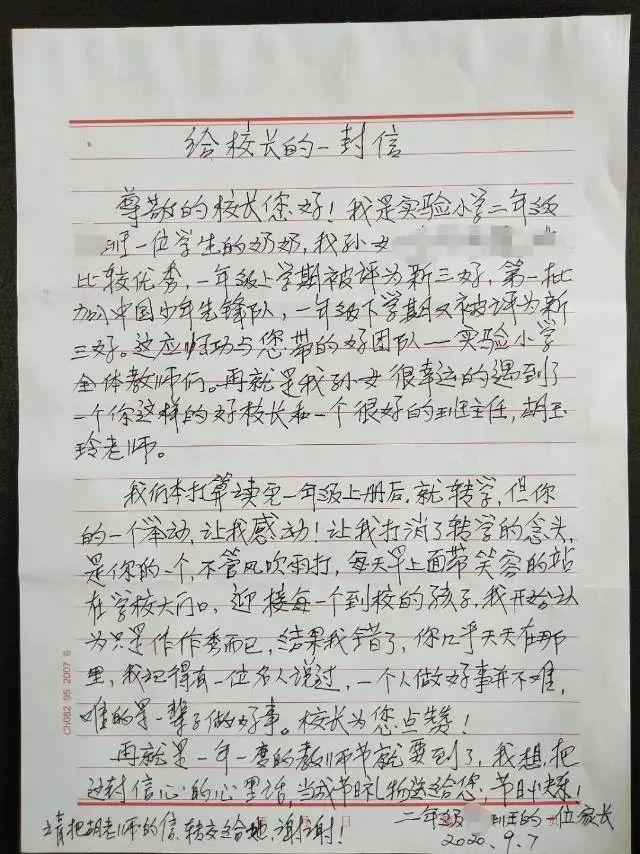 给校长的一封信
尊敬的校长您好！我是实验小学二年级
班一位学生的奶奶，我孙女
比较优秀，一年级上学期被评为新三好，第一批
加入中国少年先锋队，一年级下学期又被评为新
三好。这应归功与您带的好团队——实验小学
全体教师们。再就是我孙女很幸运的遇到了
一个你这样的好校长和一个很好的班主任，胡玉
玲老师。
我们本打算读完一年级上册后，就转学，但你
的一个举动，让我感动！让我打消了转学的念头，
是你的一个，不管风吹雨打，每天早上面带笑容的站
在学校大门口，迎接每一个到校的孩子，我开始认
为只是作作秀而已，结果我错了，你几乎天天在那
里，我记得有一位名人说过，一个人做好事并不难，
难的是一辈子做好事。校长为您点赞！
再就是一年一度的教师节就要到了，我想，把
这封信心的心里话，当成节日礼物送给您，节日快乐！
二年级 班的一位家长
请把胡老师的信，转交给她，谢谢！
2020.9.7
CH082 95 2007 6